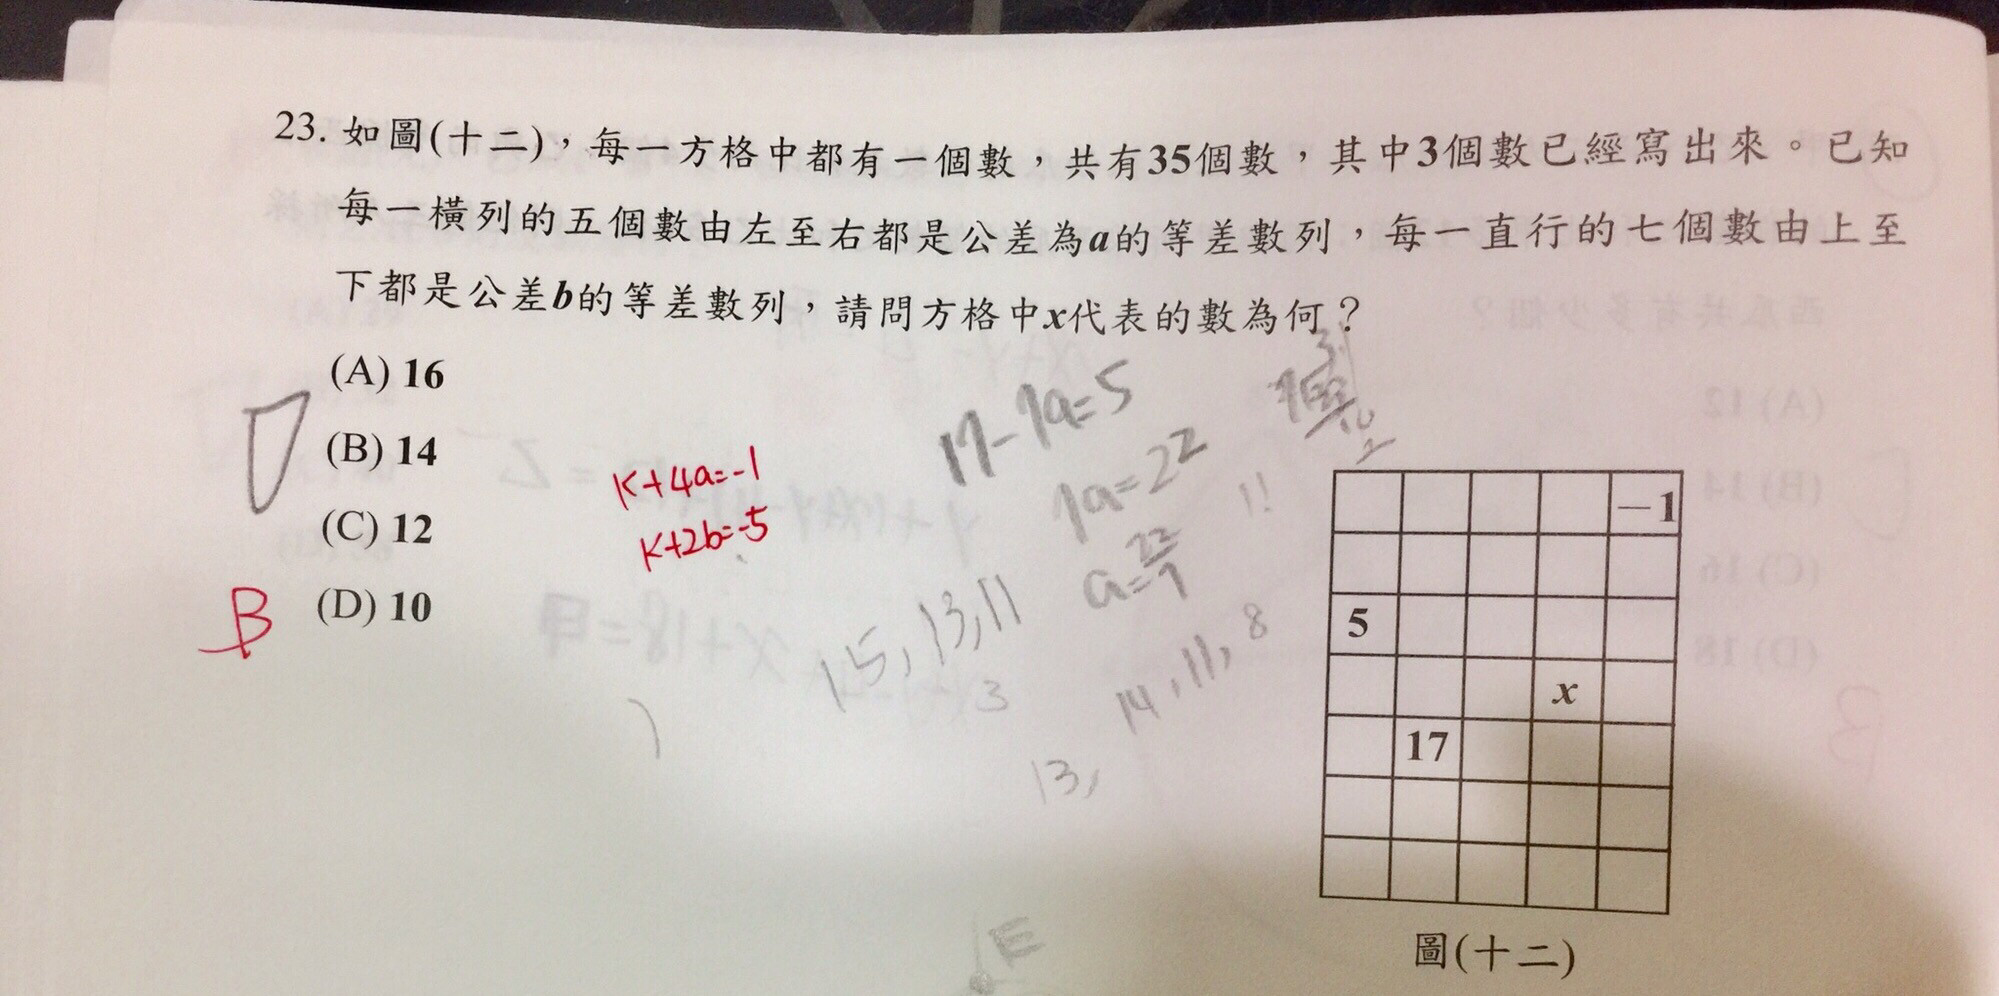 23. 如圖(十二)，每一方格中都有一個數，共有35個數，其中3個數已經寫出來。已知
每一橫列的五個數由左至右都是公差為a的等差數列，每一直行的七個數由上至
下都是公差b的等差數列，請問方格中x代表的數為何？
(A) 16
(B) 14
(C) 12
(D) 10
B
k+4a=-1
k+2b=-5
17-7a=5
7a=22
a=22/7
11
15,13,11
3
14,11,8
13,
E
-1
5
x
17
圖(十二)